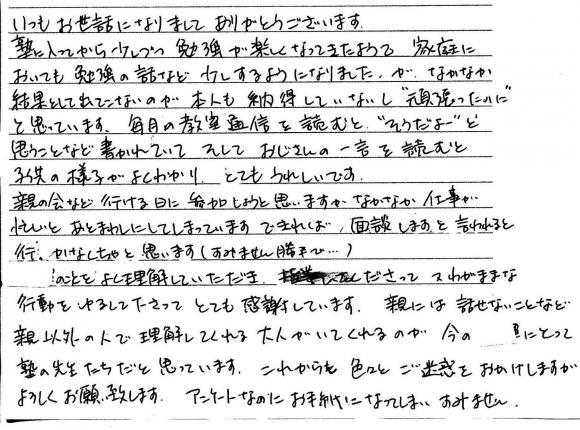 いつもお世話になりましてありがとうございます.
塾に入ってから少しづつ 勉強が楽しくなってきたようで 家庭に
おいても勉強の話など 少しするようになりました.が、なかなか
結果として出てこないのが 本人も 納得していないし "頑張ったのに"
と思っています. 毎月の教室通信を読むと、"そうだよー"と
思うことなど書かれていて そして おじさんの一言を読むと
子供の様子がよくわかり、とてもうれしいです.
親の会など行ける日に参加しようと思いますがなかなか仕事が
忙しいとあとまわしにしてしまっています できれば、面談しますと言われると
行かなくちゃと思います(すみません勝手で…)
のことをよく理解していただき、 くださって又わがままな
行動をゆるして下さって とても感謝しています. 親には話せないことなど
親以外の人で理解してくれる大人がいてくれるのが 今の にとって
塾の先生たちだと思っています. これからも色々とご迷惑をおかけしますが
よろしくお願い致します. アンケートなのにお手紙になってしまい すみません.